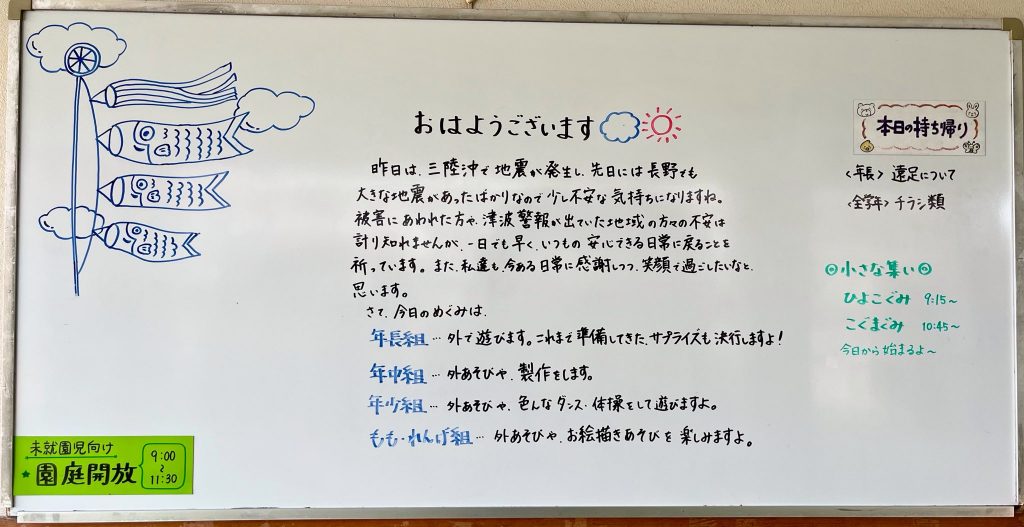 おはようございます
昨日は、三陸沖で地震が発生し、先日には長野でも
大きな地震があったばかりなので少し不安な気持ちになりますね。
被害にあわれた方や、津波警報が出ていた地域の方々の不安は
計り知れませんが、一日でも早く、いつもの安心できる日常に戻ることを
祈っています。また、私達も、今ある日常に感謝しつつ、笑顔で過ごしたいなと、
思います。
さて、今日のめぐみは、
年長組…外で遊びます。これまで準備してきた、サプライズも決行しますよ！
年中組…外あそびや、製作をします。
年少組…外あそびや、色んなダンス・体操をして遊びますよ。
もも・れんげ組…外あそびや、お絵描きあそびを楽しみますよ。
本日の持ち帰り
〈年長〉遠足について
〈全学年〉チラシ類
◎小さな集い◎
ひよこぐみ 9:15〜
こぐまぐみ 10:45〜
今日から始まるよ〜
未就園児向け
★園庭開放
9:00
〜
11:30